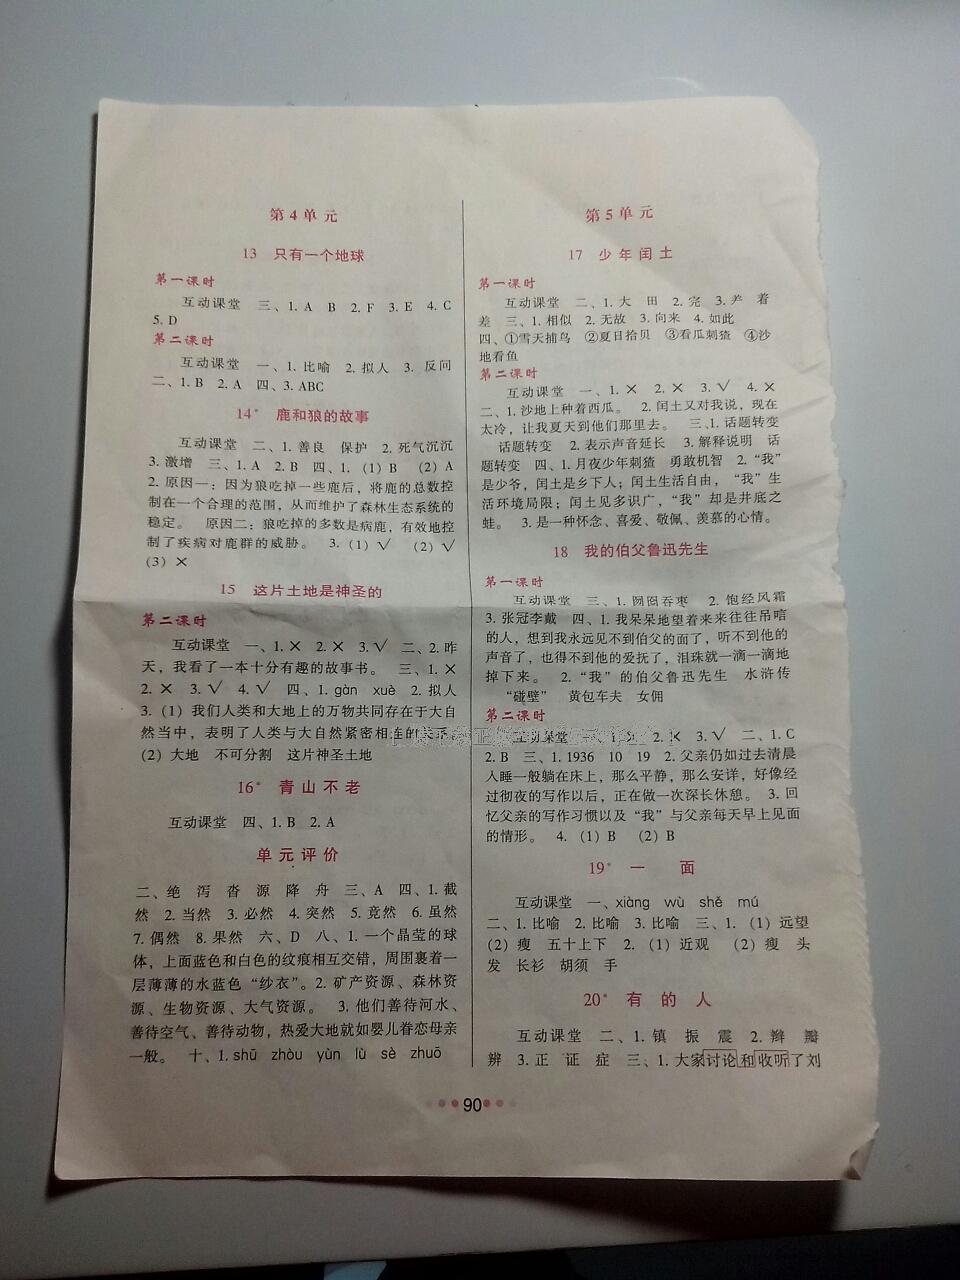 第4单元
13 只有一个地球
第一课时
互动课堂 三、1. A B 2. F 3. E 4. C
5. D
第二课时
互动课堂 一、1. 比喻 2. 拟人 3. 反问
二、1. B 2. A 四、3. ABC
14* 鹿和狼的故事
互动课堂 二、1. 善良 保护 2. 死气沉沉
3. 激增 三、1. A 2. B 四、1. (1) B (2) A
2. 原因一：因为狼吃掉一些鹿后，将鹿的总数控
制在一个合理的范围，从而维护了森林生态系统的
稳定。 原因二：狼吃掉的多数是病鹿，有效地控
制了疾病对鹿群的威胁。 3. (1) √ (2) √
(3) ×
15 这片土地是神圣的
第二课时
互动课堂 一、1. × 2. × 3. √ 二、2. 昨
天，我看了一本十分有趣的故事书。 三、1. ×
2. × 3. √ 4. √ 四、1. gàn xuè 2. 拟人
3. (1) 我们人类和大地上的万物共同存在于大自
然当中，表明了人类与大自然紧密相连的关系
(2) 大地 不可分割 这片神圣土地
16* 青山不老
互动课堂 四、1. B 2. A
单元评价
二、绝 泻 沓 源 降 舟 三、A 四、1. 截
然 2. 当然 3. 必然 4. 突然 5. 竟然 6. 虽然
7. 偶然 8. 果然 六、D 八、1. 一个晶莹的球
体，上面蓝色和白色的纹痕相互交错，周围裹着一
层薄薄的水蓝色“纱衣”。2. 矿产资源、森林资
源、生物资源、大气资源。 3. 他们善待河水、
善待空气、善待动物，热爱大地就如婴儿眷恋母亲
一般。 十、1. shū zhòu yùn lù sè zhuō
第5单元
17 少年闰土
第一课时
互动课堂 二、1. 大 田 2. 完 3. 羊 着
差 三、1. 相似 2. 无故 3. 向来 4. 如此
四、①雪天捕鸟 ②夏日拾贝 ③看瓜刺猹 ④沙
地看鱼
第二课时
互动课堂 一、1. × 2. × 3. √ 4. ×
二、1. 沙地上种着西瓜。 2. 闰土又对我说，现在
太冷，让我夏天到他们那里去。 三、1. 话题转变
话题转变 2. 表示声音延长 3. 解释说明 话
题转变 四、1. 月夜少年刺猹 勇敢机智 2. “我”
是少爷，闰土是乡下人；闰土生活自由，“我”生
活环境局限；闰土见多识广，“我”却是井底之
蛙。 3. 是一种怀念、喜爱、敬佩、羡慕的心情。
18 我的伯父鲁迅先生
第一课时
互动课堂 三、1. 囫囵吞枣 2. 饱经风霜
3. 张冠李戴 四、1. 我呆呆地望着来来往往吊唁
的人，想到我永远见不到伯父的面了，听不到他的
声音了，也得不到他的爱抚了，泪珠就一滴一滴地
掉下来。 2. “我”的伯父鲁迅先生 水浒传
“碰壁” 黄包车夫 女佣
第二课时
互动课堂 2. × 3. √ 二、1. C
2. B 三、1. 1936 10 19 2. 父亲仍如过去清晨
入睡一般躺在床上，那么平静，那么安详，好像经
过彻夜的写作以后，正在做一次深长休憩。 3. 回
忆父亲的写作习惯以及“我”与父亲每天早上见面
的情形。 4. (1) B (2) B
19* 一面
互动课堂 一、xiàng wù shě mú
二、1. 比喻 2. 比喻 3. 比喻 三、1. (1) 远望
(2) 瘦 五十上下 2. (1) 近观 (2) 瘦 头
发 长衫 胡须 手
20* 有的人
互动课堂 二、1. 镇 振 震 2. 辫 瓣
辨 3. 正 证 症 三、1. 大家讨论和收听了刘
90